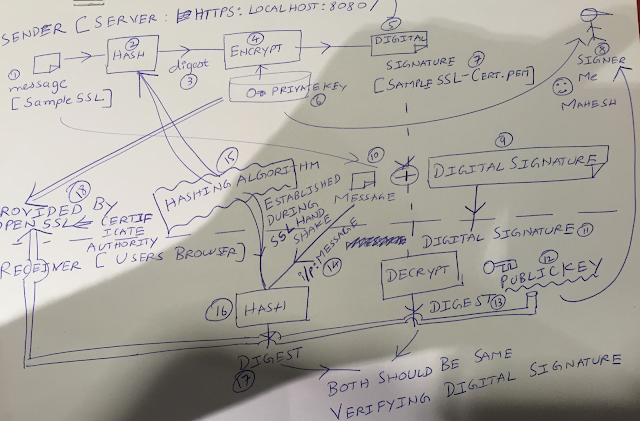 SENDER [ SERVER : HTTPS: LOCALHOST:8080/
①
message
[SampleSSL]
②
HASH
digest
③
④
ENCRYPT
PRIVATE KEY
⑥
⑤
DIGITAL
SIGNATURE ⑦
[SAMPLE SSL-CERT.pem]
⑧
SIGNER
Me
MAHESH
⑨
DIGITAL SIGNATURE
⑩
MESSAGE
⑮
HASHING ALGORITHM
ESTABLISHED
DURING
SSL HAND
SHAKE
⑱
PROVIDED BY
OPEN SSL
CERTIF
ICATE
AUTHORITY
RECEIVER [ USERS BROWSER]
I/P: MESSAGE
⑭
DIGITAL SIGNATURE ⑪
DECRYPT
⑫
PUBLIC KEY
DIGEST ⑬
⑯
HASH
DIGEST
⑰
BOTH SHOULD BE SAME
VERIFYING DIGITAL SIGNATURE